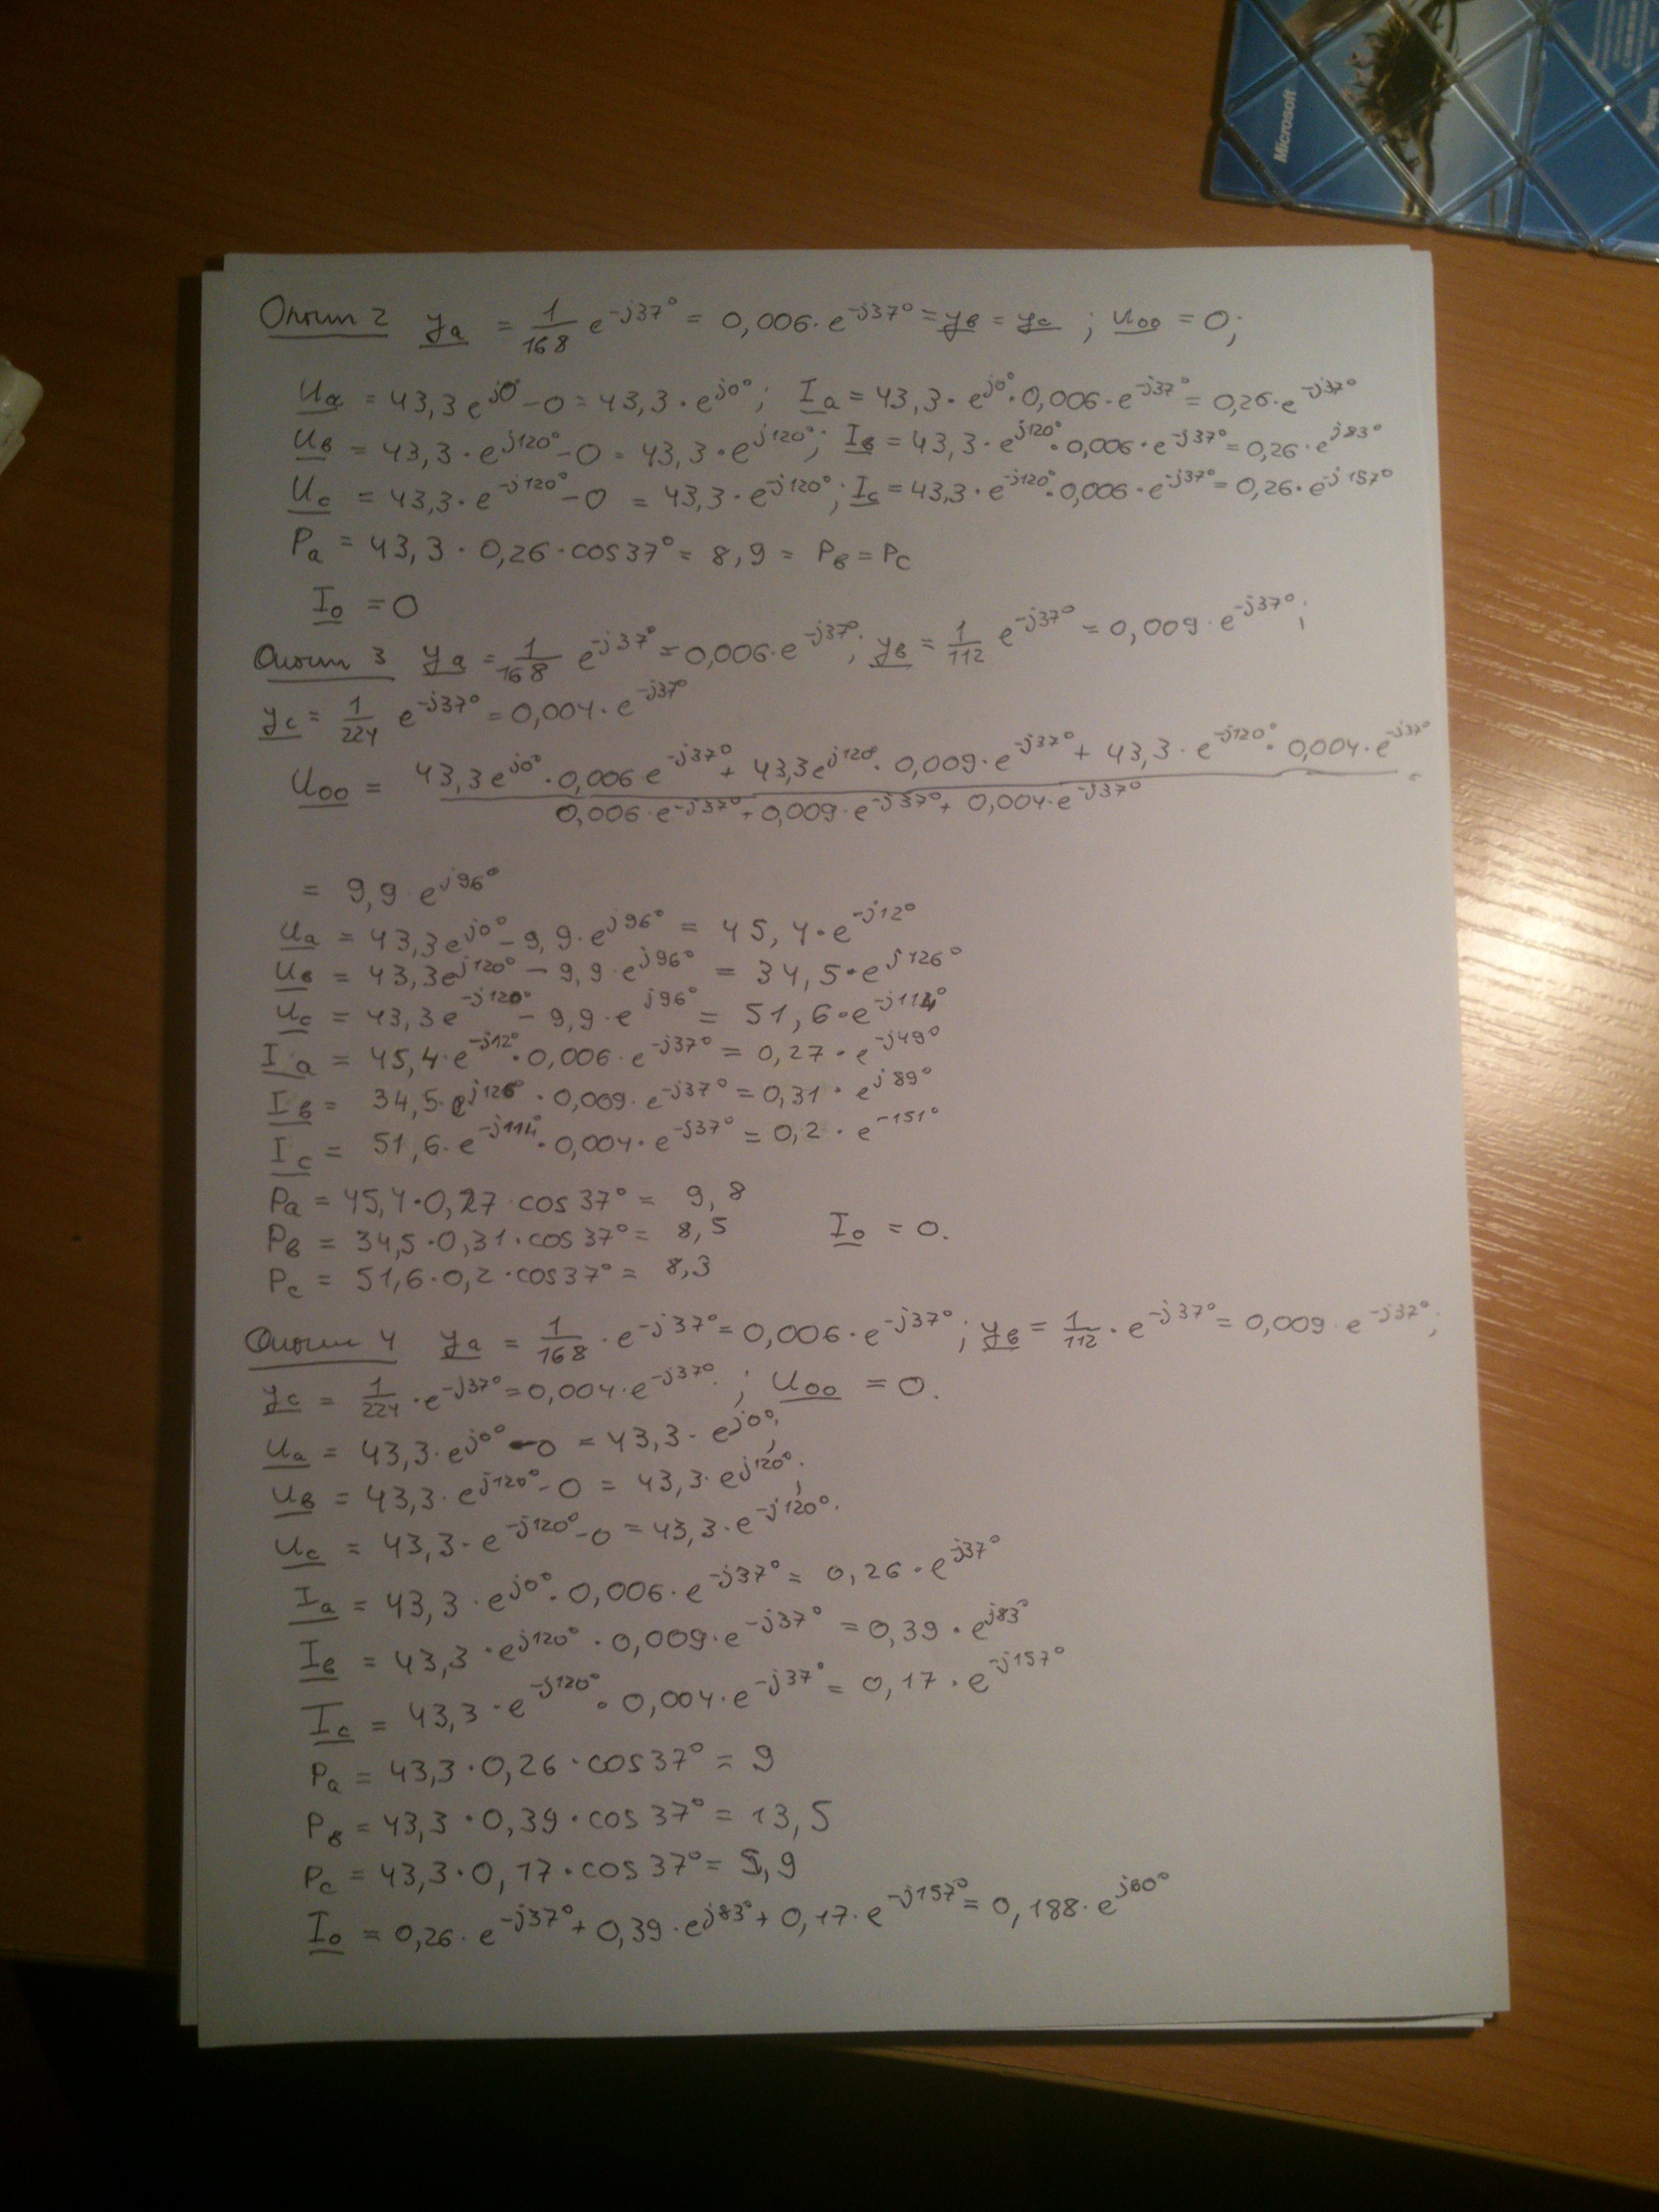 Microsoft
Опыт 2 ya = 1/168 e^-j37° = 0,006·e^-j37° = yв = yc ; U00 = 0;
Ua = 43,3e^j0° - 0 = 43,3·e^j0°; Ia = 43,3·e^j0°·0,006·e^-j37° = 0,26·e^-j37°
Uв = 43,3·e^j120° - 0 = 43,3·e^j120°; Iв = 43,3·e^j120°·0,006·e^-j37° = 0,26·e^j83°
Uc = 43,3·e^-j120° - 0 = 43,3·e^-j120°; Ic = 43,3·e^-j120°·0,006·e^-j37° = 0,26·e^-j157°
Pa = 43,3·0,26·cos37° = 8,9 = Pв = Pc
I0 = 0
Опыт 3 ya = 1/168 e^-j37° = 0,006·e^-j37°; yв = 1/112 e^-j37° = 0,009·e^-j37°;
yc = 1/224 e^-j37° = 0,004·e^-j37°
U00 = 43,3e^j0°·0,006e^-j37° + 43,3e^j120°·0,009·e^-j37° + 43,3·e^-j120°·0,004·e^-j37° =
0,006·e^-j37° + 0,009·e^-j37° + 0,004·e^-j37°
= 9,9·e^j96°
Ua = 43,3e^j0° - 9,9·e^j96° = 45,4·e^-j12°
Uв = 43,3e^j120° - 9,9·e^j96° = 34,5·e^j126°
Uc = 43,3e^-j120° - 9,9·e^j96° = 51,6·e^-j114°
Ia = 45,4·e^-j12°·0,006·e^-j37° = 0,27·e^-j49°
Iв = 34,5·e^j126°·0,009·e^-j37° = 0,31·e^j89°
Ic = 51,6·e^-j114°·0,004·e^-j37° = 0,2·e^-151°
Pa = 45,4·0,27·cos37° = 9,8
Pв = 34,5·0,31·cos37° = 8,5 I0 = 0.
Pc = 51,6·0,2·cos37° = 8,3
Опыт 4 ya = 1/168·e^-j37° = 0,006·e^-j37°; yв = 1/112·e^-j37° = 0,009·e^-j37°;
yc = 1/224·e^-j37° = 0,004·e^-j37°; U00 = 0.
Ua = 43,3·e^j0° - 0 = 43,3·e^j0°;
Uв = 43,3·e^j120° - 0 = 43,3·e^j120°;
Uc = 43,3·e^-j120° - 0 = 43,3·e^-j120°.
Ia = 43,3·e^j0°·0,006·e^-j37° = 0,26·e^-j37°
Iв = 43,3·e^j120°·0,009·e^-j37° = 0,39·e^j83°
Ic = 43,3·e^-j120°·0,004·e^-j37° = 0,17·e^-j157°
Pa = 43,3·0,26·cos37° = 9
Pв = 43,3·0,39·cos37° = 13,5
Pc = 43,3·0,17·cos37° = 5,9
I0 = 0,26·e^-j37° + 0,39·e^j83° + 0,17·e^-j157° = 0,188·e^j60°